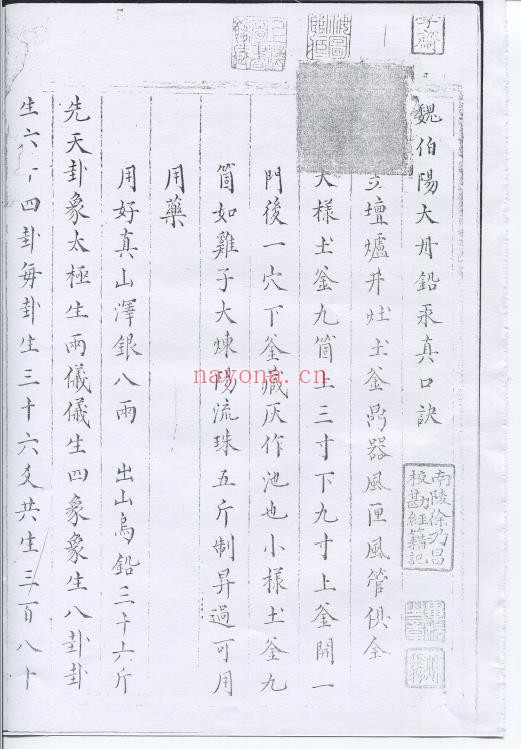 魏伯陽大丹鉛汞真口訣
立壇爐井灶土釜鼎器風匣風管俱全
大樣土釜九箇上三寸下九寸上釜開一
門後一穴下釜藏灰作池也小樣土釜九
箇如雞子大煉陽流珠五斤制昇過可用
用藥
用好真山澤銀八兩 出山烏鉛三十六斤
先天卦象太極生兩儀儀生四象象生八卦卦
生六十四卦每卦生三十六爻共生三百八十
南陵徐乃昌
校勘經籍記
nayong.cn